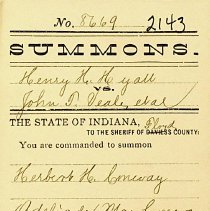 No. 8669 2143
SUMMONS.
Henry H. Hyatt
vs.
John T. Veale, et al
THE STATE OF INDIANA, Floyd
TO THE SHERIFF OF DAVIESS COUNTY:
You are commanded to summon
Herbert H. Conway